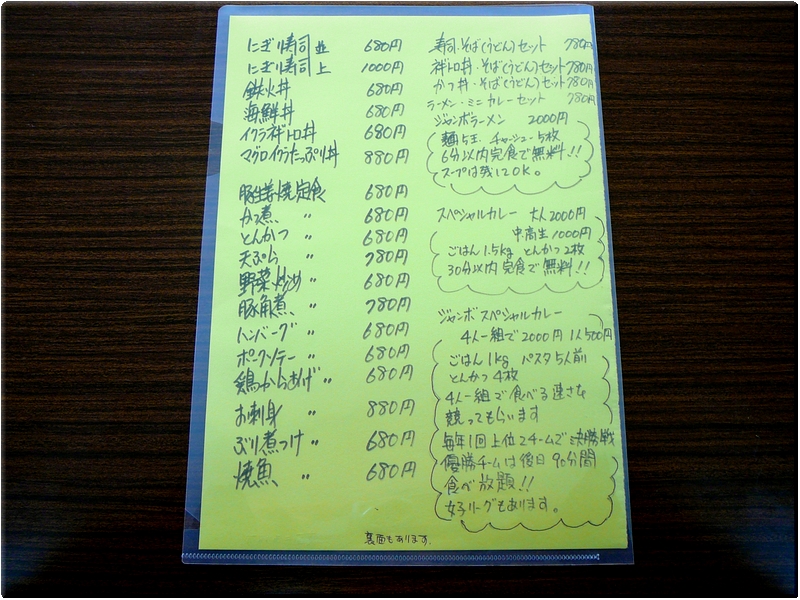 にぎり寿司 並 680円
にぎり寿司 上 1000円
鉄火丼 680円
海鮮丼 680円
イクラネギトロ丼 680円
マグロイクラたっぷり丼 880円
豚生姜焼定食 680円
かつ煮 〃 680円
とんかつ 〃 680円
天ぷら 〃 780円
野菜炒め 〃 680円
豚角煮 〃 780円
ハンバーグ 〃 680円
ポークソテー 〃 680円
鶏からあげ 〃 680円
お刺身 〃 880円
ぶり煮つけ 〃 680円
焼魚 〃 680円
寿司・そば(うどん)セット 780円
ネギトロ丼・そば(うどん)セット 780円
かつ丼・そば(うどん)セット 780円
ラーメン・ミニカレーセット 780円
ジャンボラーメン 2000円
麺5玉 チャーシュー5枚
6分以内完食で無料!!
スープは残してOK。
スペシャルカレー 大人2000円
中高生1000円
ごはん1.5kg とんかつ2枚
30分以内完食で無料!!
ジャンボスペシャルカレー
4人一組で2000円 1人500円
ごはん1kg パスタ5人前
とんかつ4枚
4人一組で食べる速さを
競ってもらいます
毎年1回上位2チームで決勝戦
優勝チームは後日90分間
食べ放題!!
女子リーグもあります。
裏面もあります。